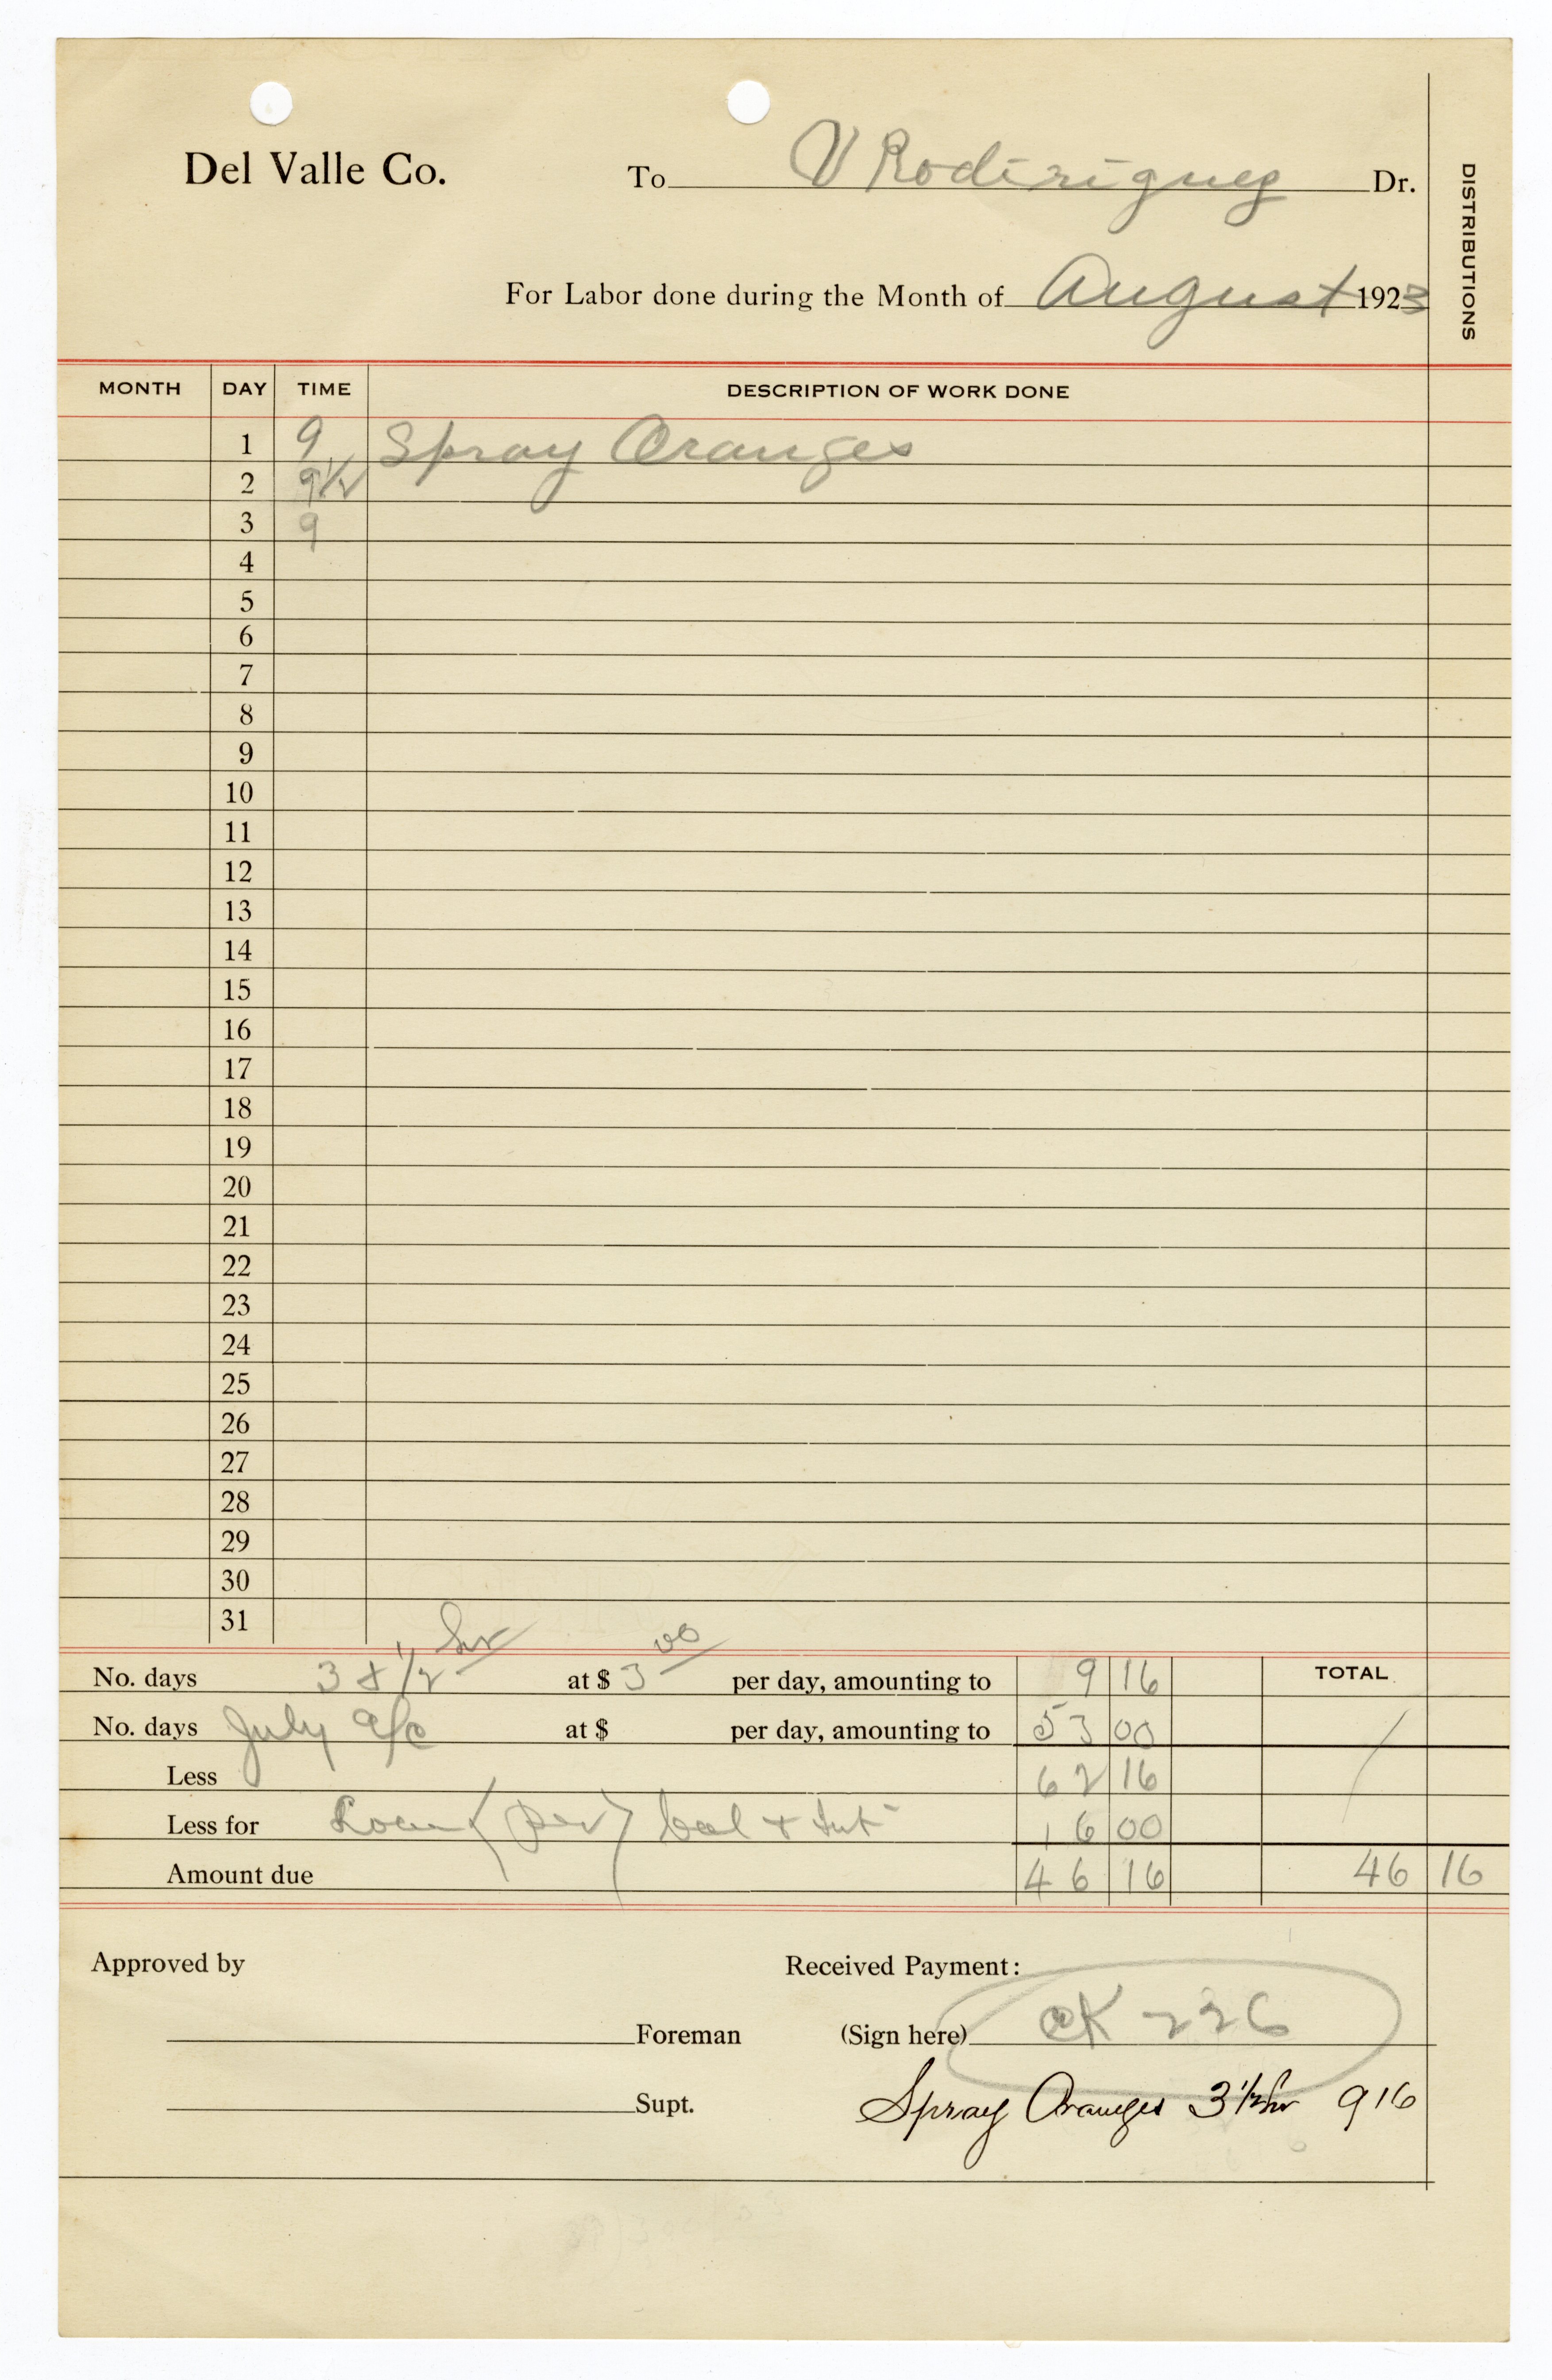 Del Valle Co. To V Rodiriguez Dr.
DISTRIBUTIONS
For Labor done during the Month of August 1923
MONTH DAY TIME DESCRIPTION OF WORK DONE
1 9 Spray Oranges
2 9 1/2
3 9
4
5
6
7
8
9
10
11
12
13
14
15
16
17
18
19
20
21
22
23
24
25
26
27
28
29
30
31
No. days 3 & 1/2 hr at $ 3 00 per day, amounting to 9 16 TOTAL
No. days July a/c at $ per day, amounting to 53 00
Less 62 16
Less for Loan bal + Int 16 00
Amount due 46 16 46 16
Approved by Received Payment:
Foreman (Sign here) CK 226
Supt. Spray Oranges 3 1/2 hr 9 16